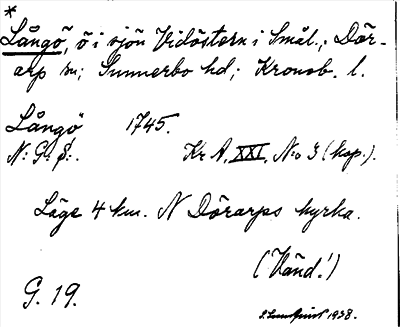 *
Långö, ö i sjön Vidöstern i Smål.; Dör-
arp sn; Sunnerbo hd; Kronob. l.
Långö 1745.
N: G: S:. Kr A. XXI, N:o 3 (kop.).
Läge 4 km. N Dörarps kyrka.
(Vänd!)
G. 19.
1938.